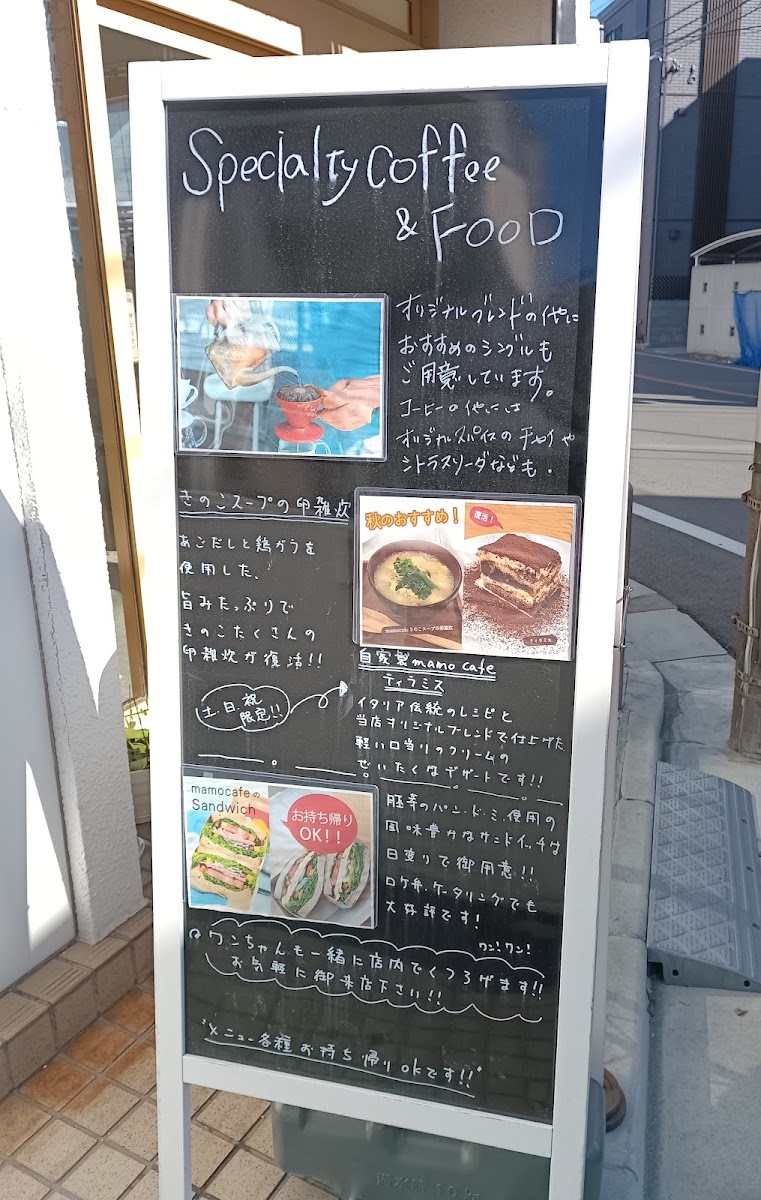 Specialty coffee
& FOOD
オリジナルブレンドの他に
おすすめのシングルも
ご用意しています。
コーヒーの他には
オリジナルスパイスのチャイや
シトラスソーダなども・
きのこスープの卵雑炊
あごだしと鶏ガラを
使用した、
旨みたっぷりで
きのこたくさんの
卵雑炊が復活!!
土・日・祝
限定!!
秋のおすすめ!
復活!
mamocafe きのこスープの卵雑炊
ティラミス
自家製mamo cafe
ティラミス
イタリア伝統のレシピと
当店オリジナルブレンドで仕上げた
軽い口当りのクリームの
ぜいたくなデザートです!!
mamocafeの
Sandwich
お持ち帰り
OK!!
胚芽のパン・ド・ミ使用の
風味豊かなサンドイッチは
日替りで御用意!!
ロケ弁、ケータリングでも
大好評です!
ワン!ワン!
ワンちゃんも一緒に店内でくつろげます!!
お気軽に御来店下さい!!
"メニュー各種お持ち帰りokです!!"